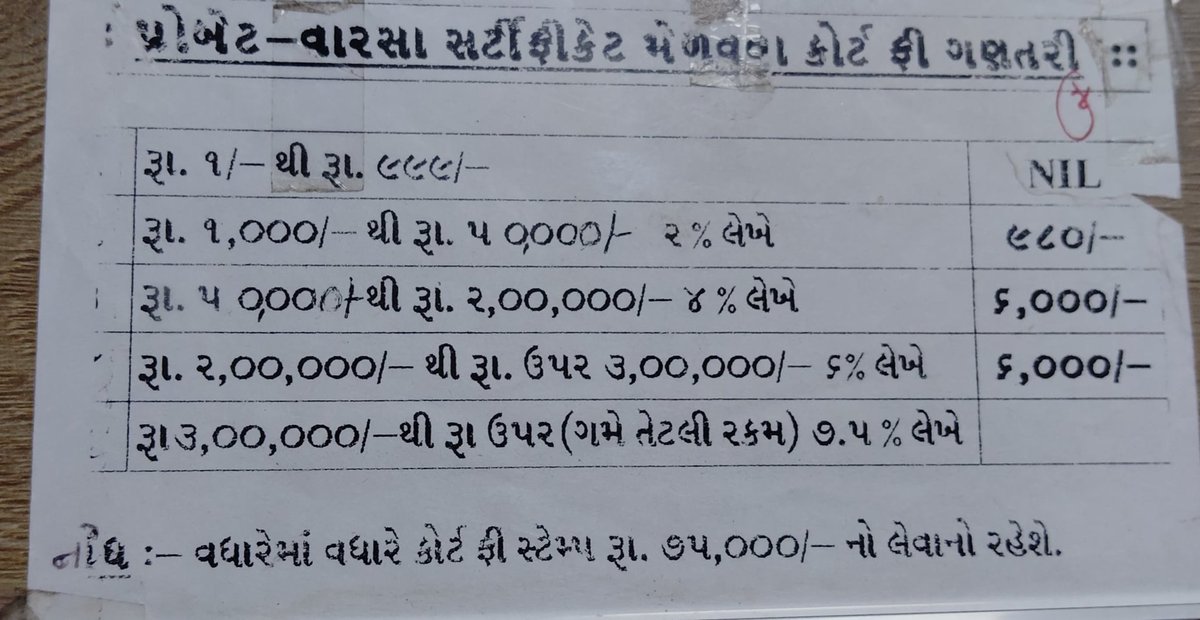 : પ્રોબેટ-વારસા સર્ટીફીકેટ મેળવવા કોર્ટ ફી ગણતરી ::
૪
રૂા. ૧/- થી રૂા. ૯૯૯/- NIL
રૂા. ૧,૦૦૦/- થી રૂા. ૫૦,૦૦૦/- ૨% લેખે ૯૮૦/-
રૂા. ૫૦,૦૦૦/- થી રૂા. ૨,૦૦,૦૦૦/- ૪% લેખે ૬,૦૦૦/-
રૂા. ૨,૦૦,૦૦૦/- થી રૂા. ઉપર ૩,૦૦,૦૦૦/- ૬% લેખે ૬,૦૦૦/-
રૂા ૩,૦૦,૦૦૦/-થી રૂા ઉપર (ગમે તેટલી રકમ) ૭.૫% લેખે
નોંધ :- વધારેમાં વધારે કોર્ટ ફી સ્ટેમ્પ રૂા. ૭૫,૦૦૦/- નો લેવાનો રહેશે.